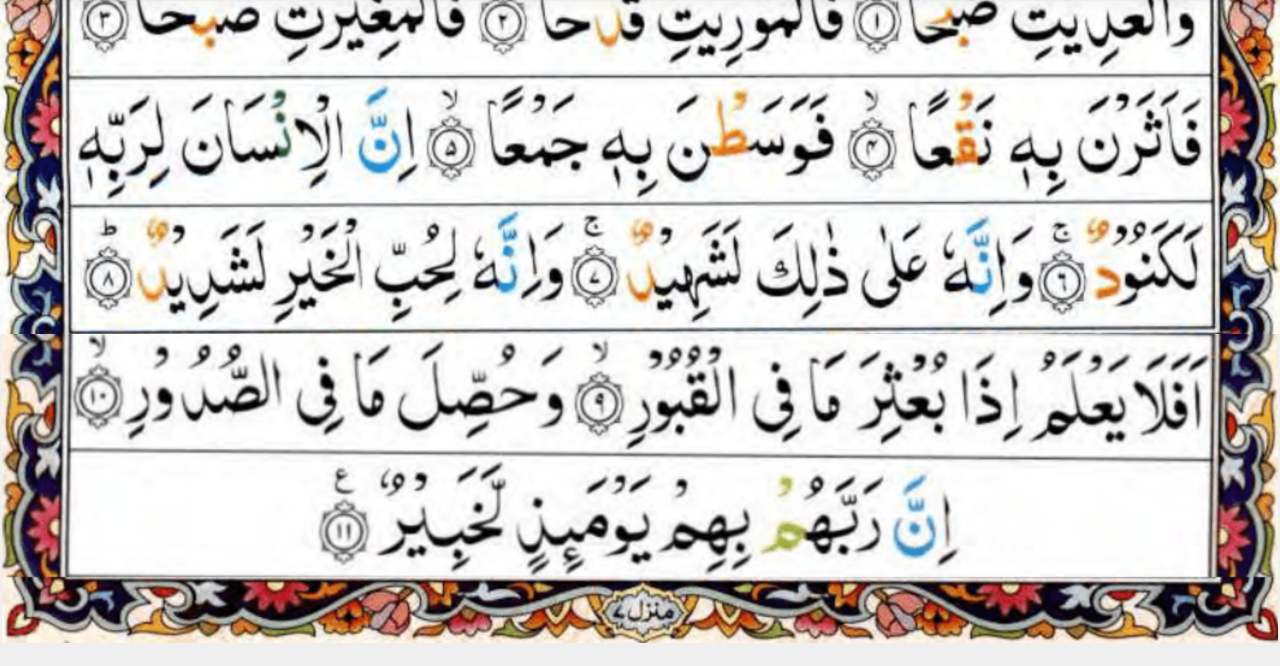 وَالْعٰدِيٰتِ ضَبْحًا ۙ﴿۱﴾ فَالْمُوْرِيٰتِ قَدْحًا ۙ﴿۲﴾ فَالْمُغِيْرٰتِ صُبْحًا ۙ﴿۳﴾
فَاَثَرْنَ بِهٖ نَقْعًا ۙ﴿۴﴾ فَوَسَطْنَ بِهٖ جَمْعًا ۙ﴿۵﴾ اِنَّ الْاِنْسَانَ لِرَبِّهٖ
لَكَنُوْدٌ ۚ﴿۶﴾ وَاِنَّهٗ عَلٰى ذٰلِكَ لَشَهِيْدٌ ۚ﴿۷﴾ وَاِنَّهٗ لِحُبِّ الْخَيْرِ لَشَدِيْدٌ ؕ﴿۸﴾
اَفَلَا يَعْلَمُ اِذَا بُعْثِرَ مَا فِى الْقُبُوْرِ ۙ﴿۹﴾ وَحُصِّلَ مَا فِى الصُّدُوْرِ ۙ﴿۱۰﴾
اِنَّ رَبَّهُمْ بِهِمْ يَوْمَئِذٍ لَّخَبِيْرٌ ﴿۱۱﴾ ع
منزل ۷